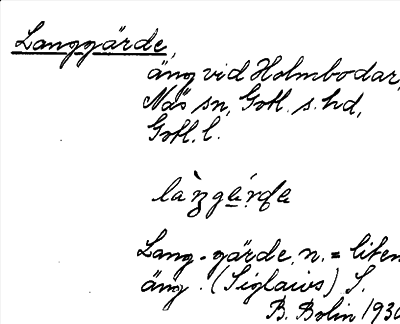 Langgärde,
äng vid Holmbodar,
Näs sn, Gotl. s. hd,
Gotl. l.
Lang-gärde, n. = liten
äng. (Siglaivs) S.
B. Bolin 1930